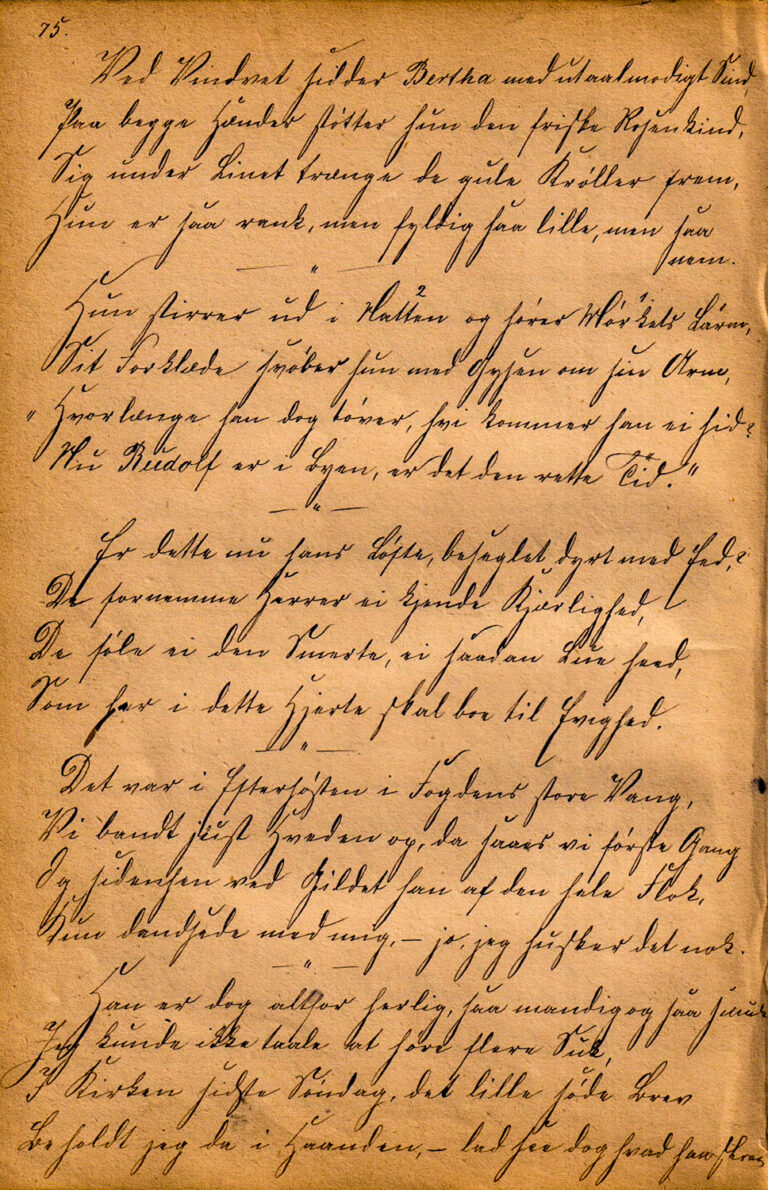 75.
Ved Vinduet sidder Bertha med utaalmodigt Sind,
Paa begge Hænder støtter hun den friske Rosenkind,
Sig under Linet trænge de gule Krøller frem,
Hun er saa rank, men fyldig saa lille, men saa
nem.
Hun stirrer ud i Natten og hører Mörkets Lärm,
Sit Forklæde svöber hun med Gysen om sin Arm,
"Hvorlænge han dog töver, hvi kommer han ei hid?
Nu Rudolf er i Byen, er det den rette Tid."
Er dette nu hans Löfte, beseglet dyrt med Eed,?
De fornemme Herrer ei kjende Kjærlighed,
De föle ei den Smerte, ei saadan Lue heed,
Som her i dette Hjerte skal boe til Evighed.
Det var i Efterhösten i Fogdens store Vang,
Vi bandt just Hveden op, da saaes vi förste Gang
Og sidenhen ved Gildet han af den hele Flok,
Kun dandsede med mig, – jo, jeg husker det nok.
Han er dog altfor herlig, saa mandig og saa smuk
Jeg kunde ikke taale at höre flere Suk,
I Kirken sidste Söndag, det lille söde Brev
Beholdt jeg da i Haanden, – lad see dog hvad han skrev